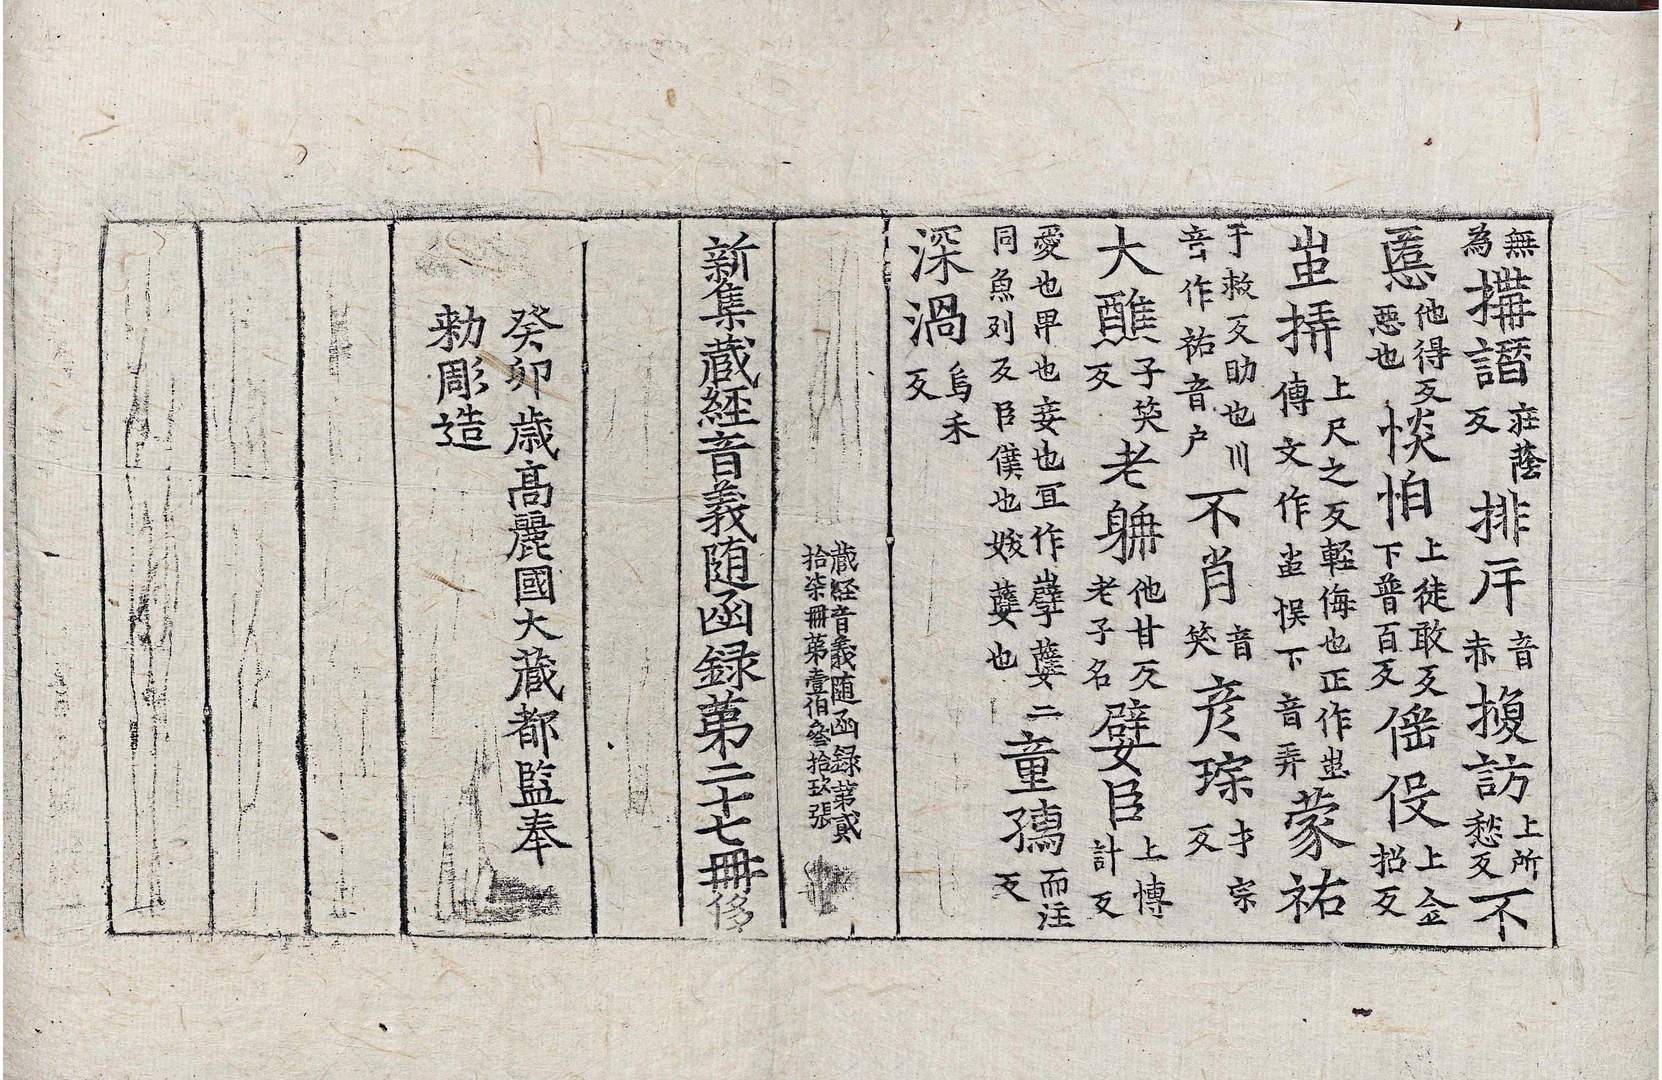 無為搆譛莊蔭反排斤音赤搜訪上所愁反不
慝他得反惡也惔怕上徒敢反下普百反傜伇上仝招反
蚩挵上尺之反輕侮也正作蚩傳文作蚩悮下音弄蒙祐
于救反助也川音作祐音户不肖音笑彦琮才宗反
大醮子笑反老聃他甘反老子名嬖臣上愽計反
愛也甲也妾也冝作孽㜸二同魚列反臣僕也㜸也童孺而注反
深渦烏禾反
蔵経音義随函録第貳
拾柒冊第壹伯叄拾玖張
新集蔵経音義随函録第二十七冊侈
癸卯歳髙麗國大蔵都監奉
勑彫造